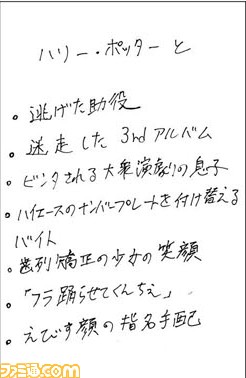 ハリー・ポッターと
• 逃げた助役
• 迷走した 3rd アルバム
• ビンタされる大衆演劇の息子
• ハイエースのナンバープレートを付け替える
バイト
• 歯列矯正の少女の笑顔
• 「フラ踊らせてくんちぇ」
• えびす顔の指名手配
ファミ通.com